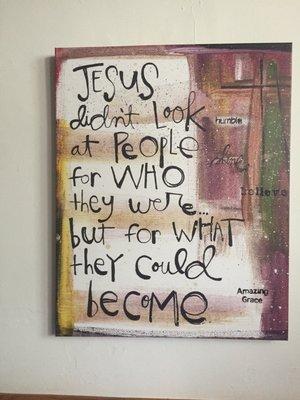 JESUS
didn't LOOK
humble
at PEOPLE
for WHO
they were...
believe
but for WHAT
they Could
become
Amazing
Grace